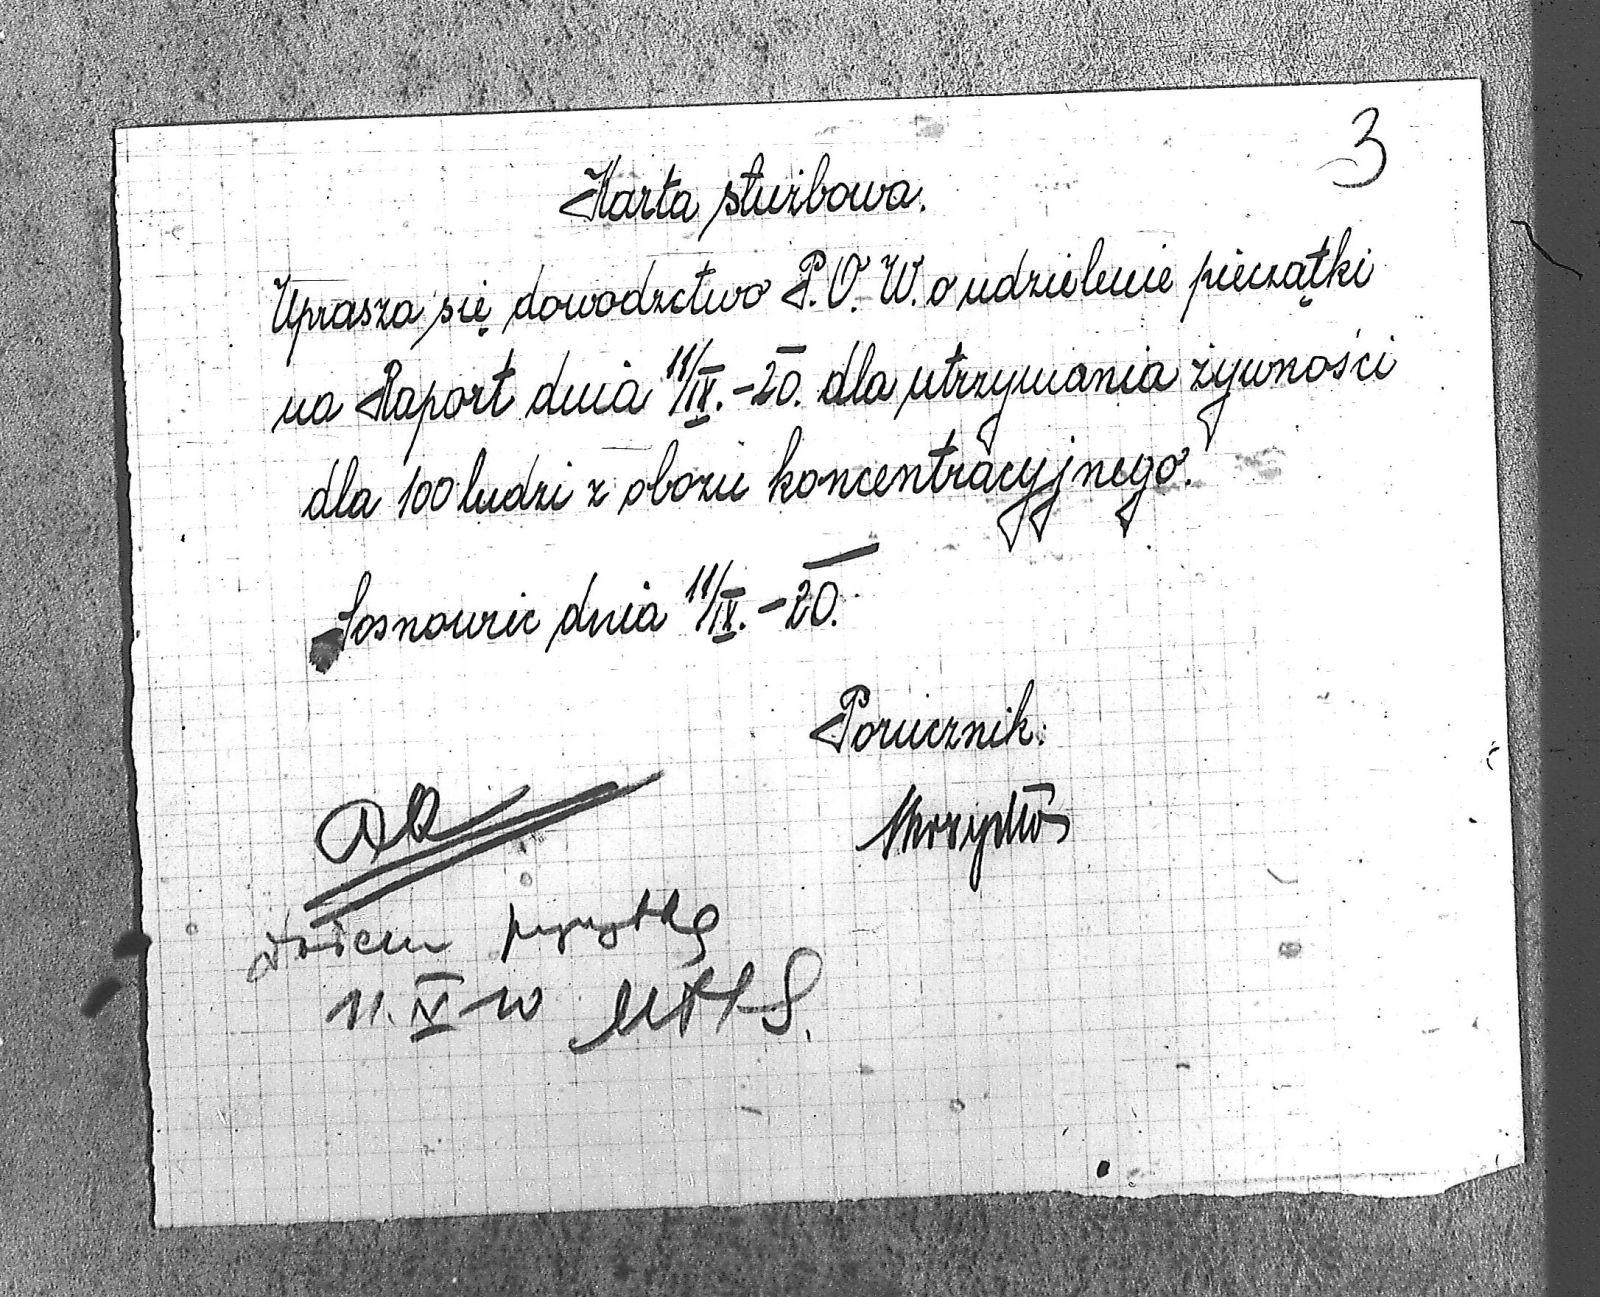 3
Karta służbowa.
Uprasza się dowodztwo P.O.W. o udzielenie pieczątki
na Raport dnia 11/IX.-20. dla utrzymania żywności
dla 100 ludzi z obozu koncentracyjnego.
Sosnowic dnia 11/IX.-20.
Porucznik:
11. IX 20